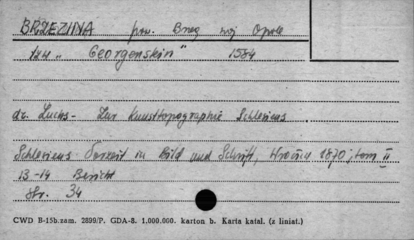 BRZEZINA pow. Brzeg woj Opole
tzw „Georgenstein" 1584
dr. Luchs - Zur Kunsttopographie Schlesiens
Schlesiens Vorzeit in Bild und Schrift, Wrocław 1870, tom II
13-14 Bericht
str. 34
CWD B-15b.zam. 2899/P. GDA-8. 1,000.000. karton b. Karta katal. (z liniat.)